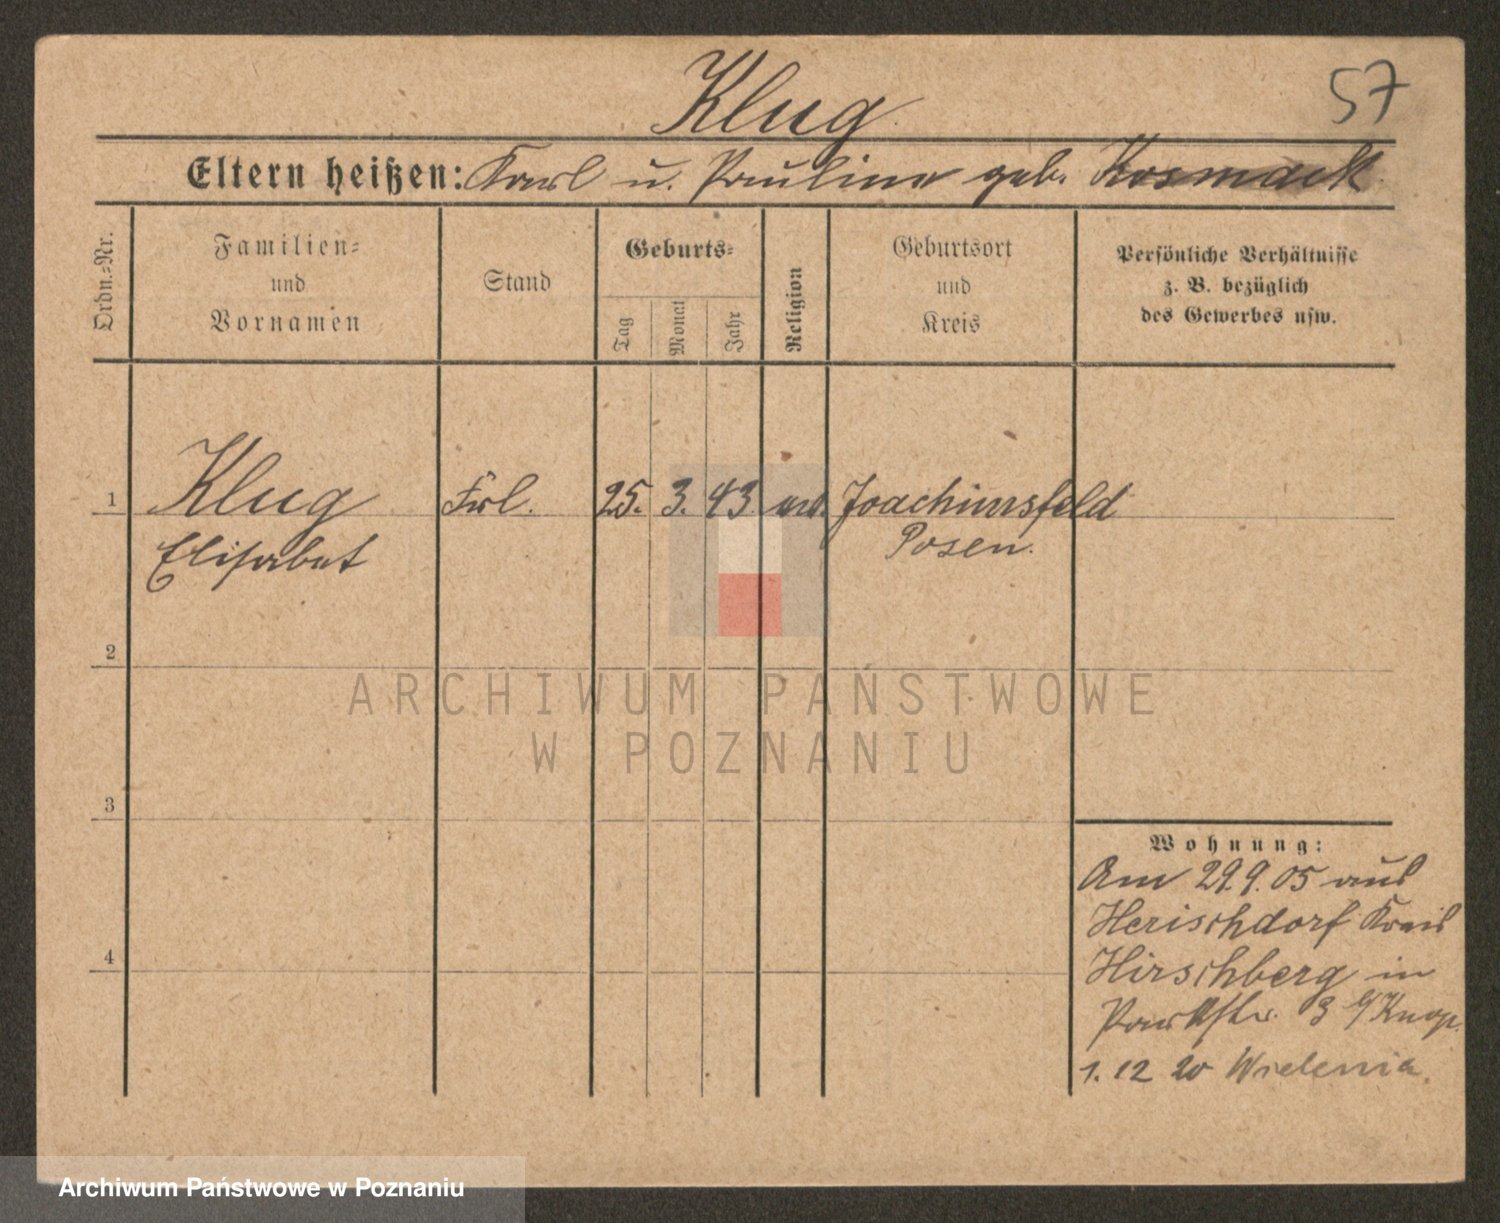 Klug
57
Eltern heißen: Karl u. Pauline geb. Kosmack
Ordn.=Nr.
Familien=
und
Vornamen
Stand
Geburts=
Tag
Monat
Jahr
Religion
Geburtsort
und
Kreis
Persönliche Verhältnisse
z. B. bezüglich
des Gewerbes usw.
1
Klug
Elisabet
Frl.
25. 3. 43
Joachimsfeld
Posen.
2
3
4
ARCHIWUM PAŃSTWOWE
W POZNANIU
Wohnung:
Am 29.9.05 aus
Herischdorf Kreis
Hirschberg in
Parkstr. 3
1. 12 20 Wielenia
Archiwum Państwowe w Poznaniu